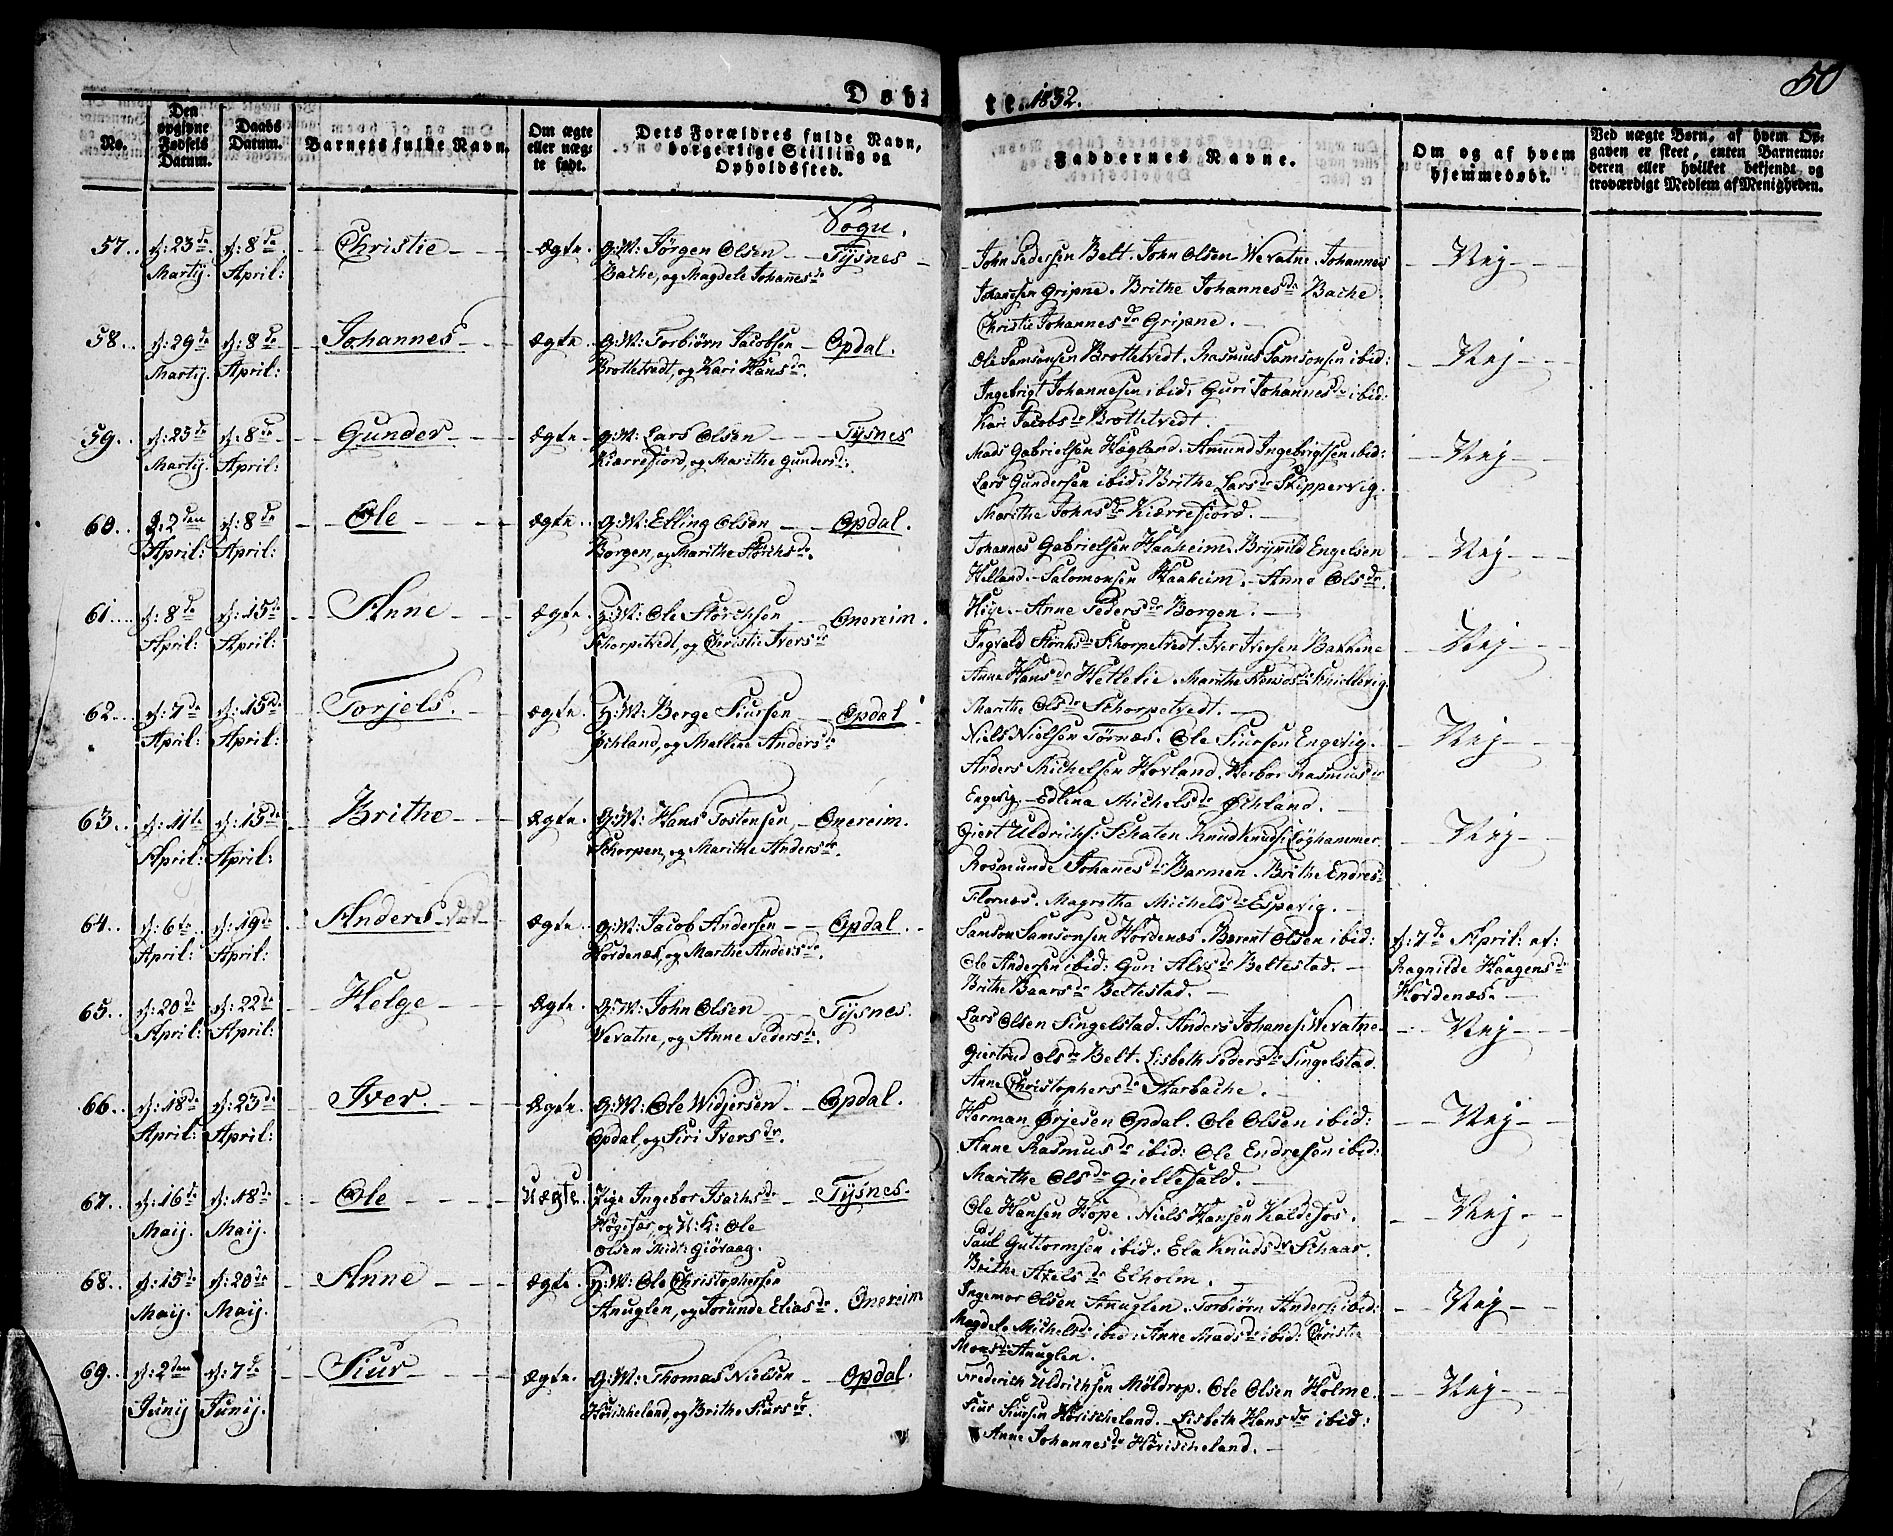 Døbte 1832.
50
No.
Den opgivne Fødsels Datum.
Daabs Datum.
Barnets fulde Navn.
Om ægte eller uægte født.
Dets Forældres fulde Navn, borgerlige Stilling og Opholdssted.
Faddernes Navne.
Om og af hvem hjemmedøbt.
Ved uægte Børn, af hvem Opgaven er skeet, enten Barnemoderen eller hvilket bekjendt og troværdigt Medlem af Menigheden.
Sogn.
57. d: 23de Martij. d: 8de April: Christie Ægte. G:M: Jørgen Olsen Tysnes
Bache, og Magdele Johannesdr
John Pedersen Belt. John Olsen Wevatne. Johannes
Johanesen Gripne. Brithe Johannesdr Bache.
Christie Johannesdr Gripne.
Nej
58. d: 29de Martij. d: 8de April: Johannes Ægte. G:M: Torbiørn Jacobsen Opdal.
Brottetvedt, og Kari Hansdr.
Ole Samsonsen Brottetvedt. Rasmus Samsonsen ibid:
Ingebrigt Johannesen ibid: Guri Johannesdr ibid:
Kari Jacobsdr Brottetvedt.
Nej
59. d: 25de Martij. d: 8de April: Gunder Ægte G:M: Lars Olsen Tysnes
Kiærrefiord, og Marithe Gundersd:
Mads Gabrielsen Hægland. Amund Ingebrigtsen ibid:
Lars Gundersen ibid: Brithe Larsdr Skippervig.
Marithe Johnsdr Kiærrefiord.
Nej
60. d: 2den April: d: 8de April: Ole Ægte. G:M: Elling Olsen Opdal.
Borgen, og Marithe Størchsdr.
Johannes Gabrielsen Haaheim. Brynild Engelsen
Helland. Salomonsen Haaheim. Anne Olsdr
Hige. Anne Pedersdr Borgen.
Nej
61. d: 8de April: d: 15de April: Anne Ægte. G:M: Ole Størchsen Onereim.
Skorpetvedt, og Christie Iversdr
Ingvald Størksdr Schorpetvedt. Iver Iversen Bakkene
Anne Hansdr Hettelie. Marithe
Marithe Olsdr Schorpetvedt.
Nej
62. d: 7de April: d: 15de April: Torjels. Ægte. G:M: Berge Siursen Opdal
Øchland, og Mallene Andersdr
Niels Nielsen Tørnæs. Ole Siursen Engevig.
Anders Michelsen Hovland. Herbor Rasmusdr
Engevig. Edlina Michelsdr Øchland.
Nej
63. d: 11te April: d: 15de April: Brithe Ægte. G:M: Hans Tostensen Onereim.
Schorpen, og Marithe Andersdr.
Giert Uldrichs: Skaten. Knud Knuds: Løghammer
Rosmunde Johannesdr Barmen. Brithe Endres
Flornæs. Magretha Michelsdr Espevig.
Nej
64. d: 6te April: d: 19de April: Anders død Ægte. G:M: Jacob Andersen Opdal.
Hordenæs, og Marthe Andersdr.
Samson Samsonsen Hordenæs. Berent Olsen ibid:
Ole Andersen ibid: Guri Alvsdr Beltestad.
Brithe Baarsdr Beltestad.
d: 7de April: af:
Ragnilde Haagensdr
Hordenæs.
65. d: 20de April: d: 22de April: Helge Ægte. G:M: John Olsen Tysnes.
Wevatne, og Anne Pedersdr.
Lars Olsen Singelstad. Anders Johanes: Wevatne
Giertrud Olsdr Belt. Lisbeth Pedersdr Singelstad
Anne Christophersdr Aarbache.
Nej
66. d: 18de April: d: 23de April: Iver. Ægte. G:M: Ole Widjersen Opdal.
Opdal, og Siri Iversdr.
Herman Ørjesen Opdal. Ole Olsen ibid:
Anne Rasmusdr ibid: Ole Endresen ibid:
Marithe Olsdr Giellefald.
Nej
67. d: 16de Maij. d: 18de Maij. Ole Uægte. Pige Ingebor Isachsdr Tysnes.
Høgefar, og U:K: Ole
Olsen Giøvaag.
Ole Hansen Hope. Niels Hansen Kaldefos.
Paul Guttormsen ibid: Ela Knudsdr Schaar.
Brithe Axelsdr Elholm.
Nej
68. d: 15de Maij. d: 20de Maij. Anne Ægte. G:M: Ole Christophersen
Anuglen, og Jorunde Eliasdr. Onereim
Ingemor Olsen Anuglen. Torbiørn Anders: ibid:
Magdele Michelsdr ibid: Anne Madsdr ibid: Christie
Monsdr Anuglen.
Nej
69. d: 2den Junij d: 7de Junij. Siur Ægte. G:M: Thomas Nielsen Opdal.
Høvischeland, og Brithe Siursdr.
Frederich Uldrichsen Møldrop. Ole Olsen Holme.
Siur Siursen Høvischeland. Lisbeth Hansdr ibid:
Anne Johannesdr Høvischeland.
Nej